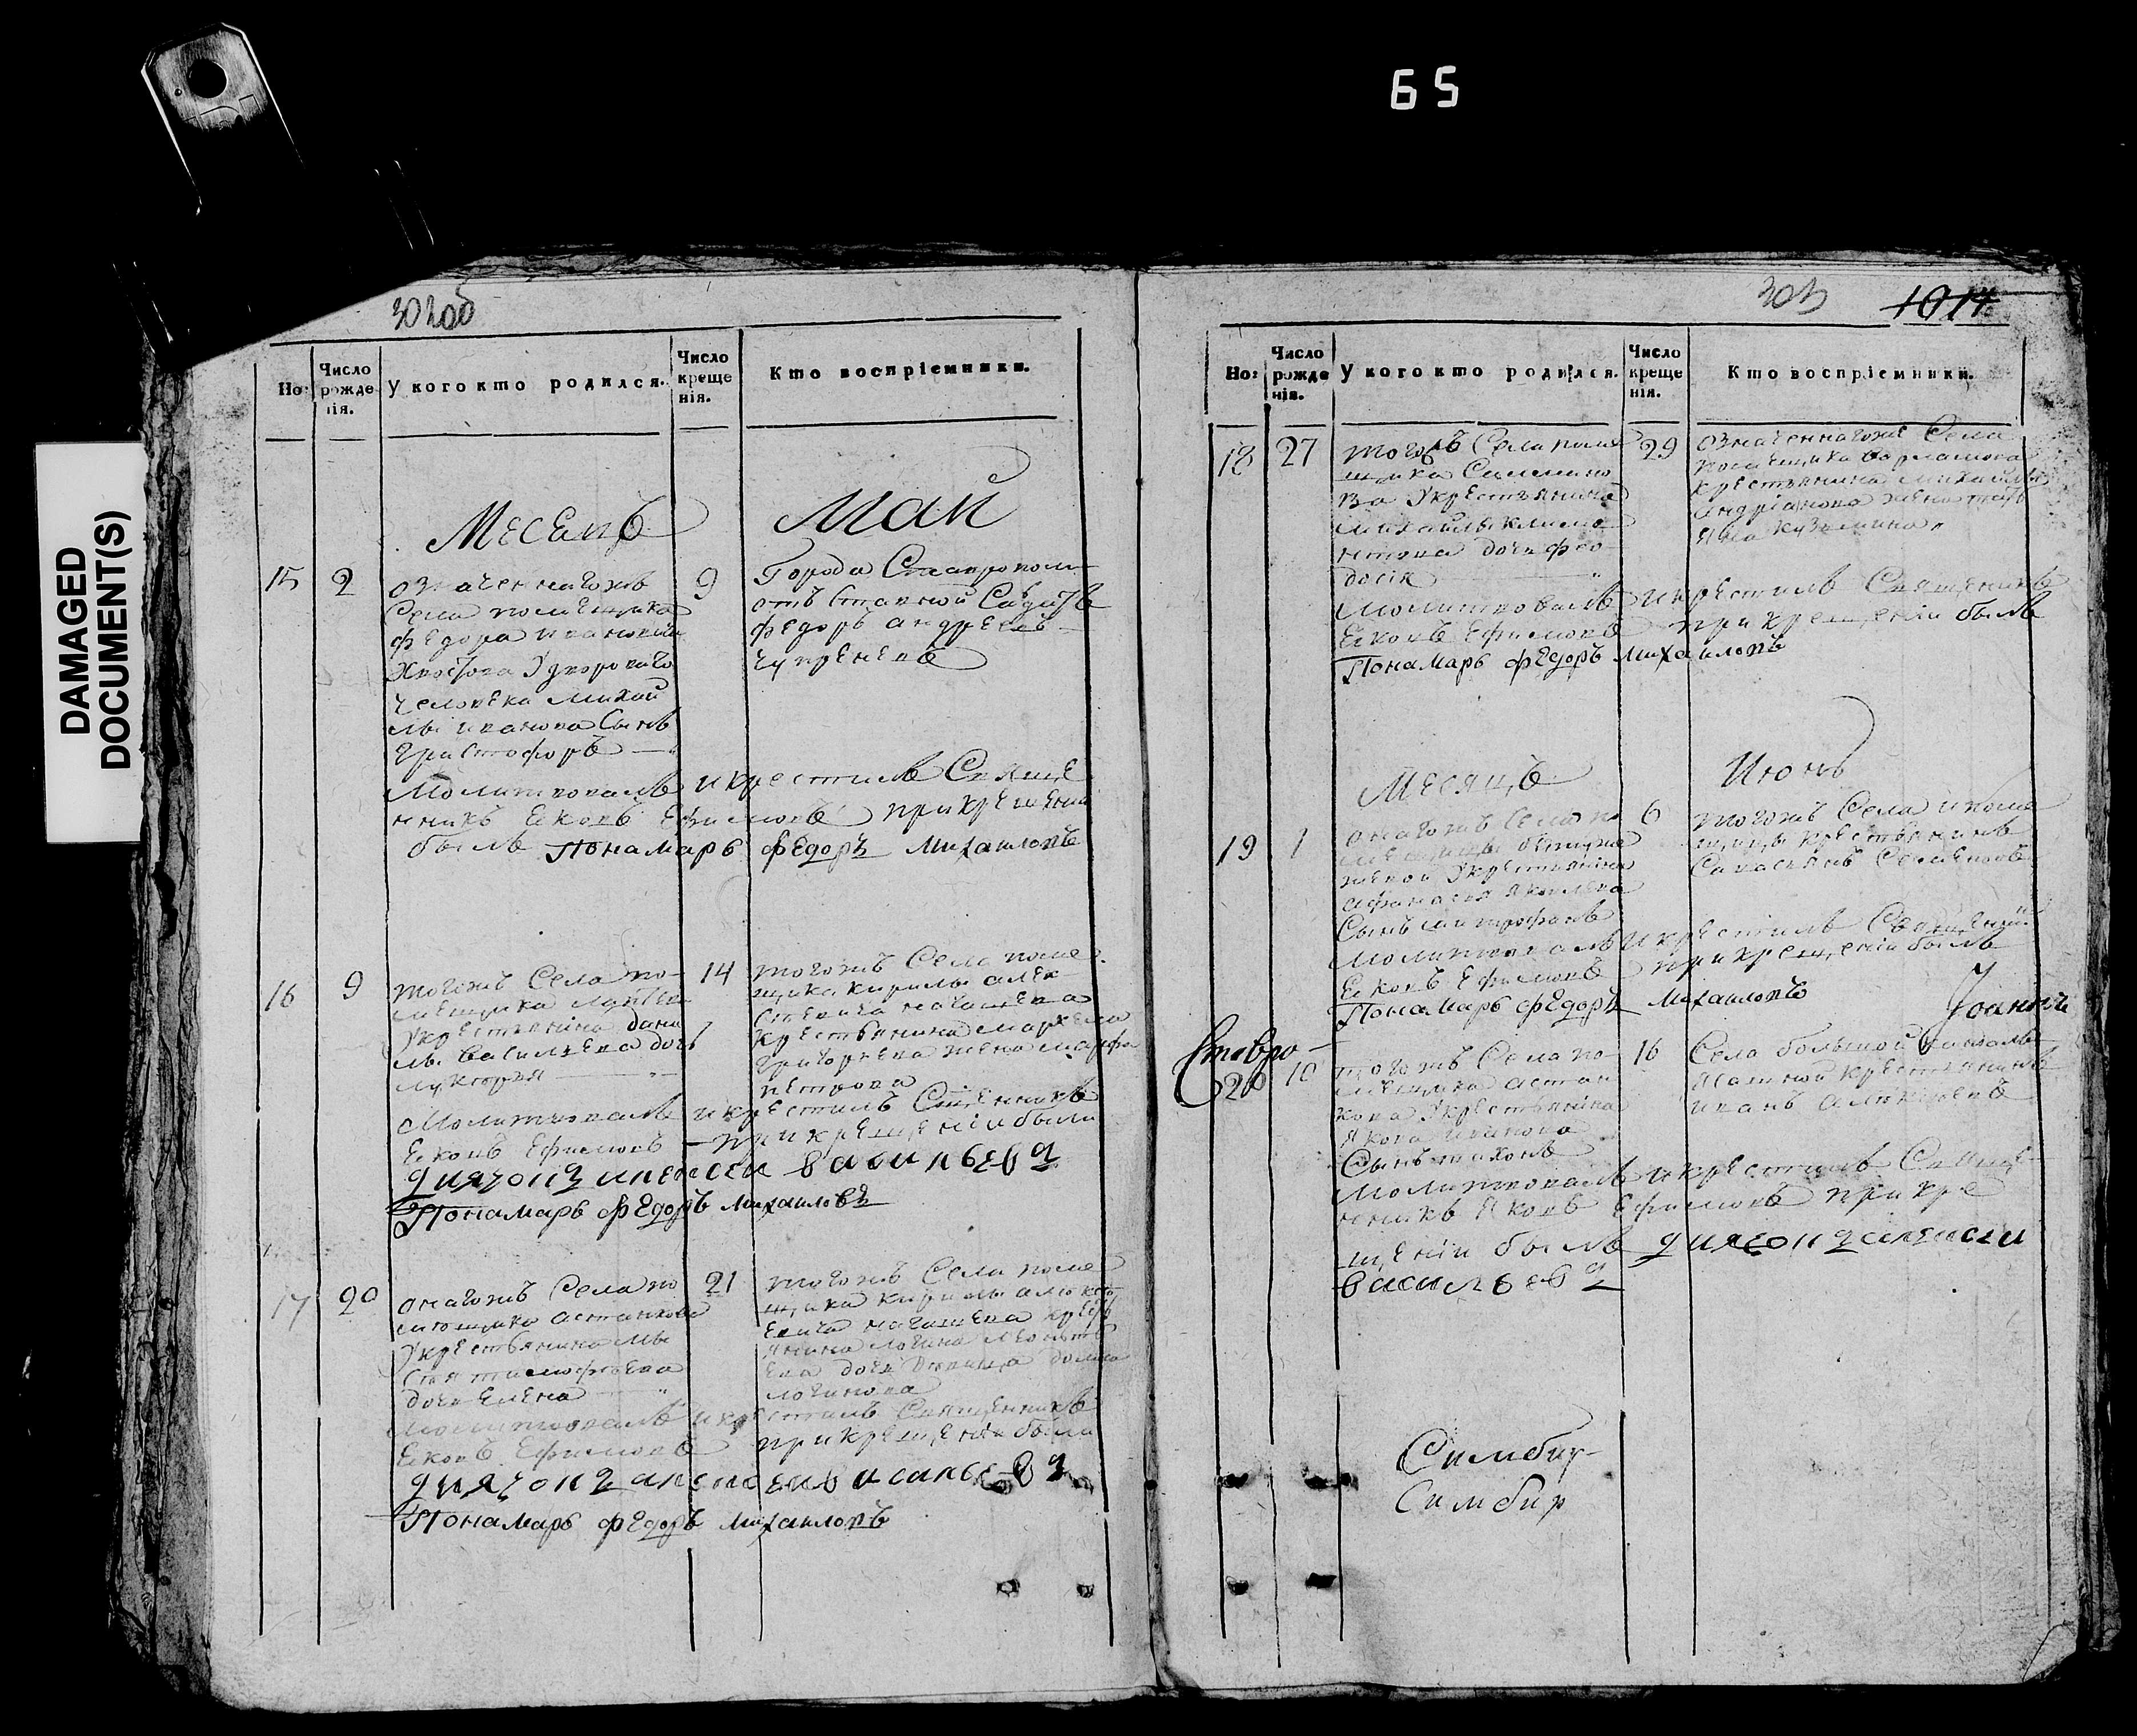 65
DAMAGED
DOCUMENT(S)
302об
Но:
Число
рожде
нія.
У кого кто родился.
Число
креще
нія.
Кто воспріемники.
Месецъ Май
15 2
означеннагожъ
Села помещика
Федора Ивановича
Хвостова у двороваго
человека Михаи
лы Иванова Сынъ
Христофоръ
9
Города Ставрополя
отъставной Салдатъ
Федоръ Андреевъ
Молитвовалъ и крестилъ Свяще
нникъ Ековъ Ефимовъ при крещении
былъ Понамарь Федоръ Михаиловъ
16 9
тогожъ Села по
мещика
у крестьянина Дани
лы Васильева дочь
Лукерья
14
тогожъ Села поме
щика Кирилы Алек
крестьянина Маркела
Григорьева жена Марфа
Петрова
Молитвовалъ и крестилъ Священникъ
Ековъ Ефимовъ при крещеніи были
Диячонъ Алексеи Васильевъ
Понамарь Федоръ Михаиловъ
17 20
онагожъ Села по
мещика Астанкова
у крестьянина
Тимофеева
дочь Елена
21
тогожъ Села поме
щика Кирилы Алексе
евича
янина Логина
ева дочь девица Домна
Логинова
Молитвовалъ и крестилъ Священникъ
Ековъ Ефимовъ при крещеніи были
Диячонъ Алексеи Васильевъ
Понамарь Федоръ Михаиловъ
303 1014
Но:
Число
рожде
нія.
У кого кто родился.
Число
креще
нія.
Кто воспріемники.
18 27
тогожъ Села поме
щика
ва у крестьянина
Михаилы Климе
нтова дочь Фео
досія
29
означеннагоже Села
помещика Варламова
крестьянина Михаилы
Андріанова жена Тать
яна Кузьмина
Молитвовалъ и крестилъ Священникъ
Ековъ Ефимовъ при крещеніи былъ
Понамарь Федоръ Михаиловъ
Месяцъ Июнь
19 1
онагожъ Села по
мещицы
у крестьянина
Афанасея Яковлева
Сынъ Митрофанъ
6
тогожъ Села и поме
щицы крестьянинъ
Савасьянъ Семеновъ
Молитвовалъ и крестилъ Священикъ
Ековъ Ефимовъ при крещеніи былъ
Понамарь Федоръ Михаиловъ
Іоаннъ
Ставро
20 10
тогожъ Села по
мещика Астан
кова у крестьянина
Якова Иванова
Сынъ Тихонъ
16
Села большой
крестьянинъ
Иванъ Алексеевъ
Молитвовалъ и крестилъ Свяще
нникъ Яковъ Ефимовъ при кре
щеніи былъ Диячонъ Алексеи
Васильевъ
Симбир
Симбир